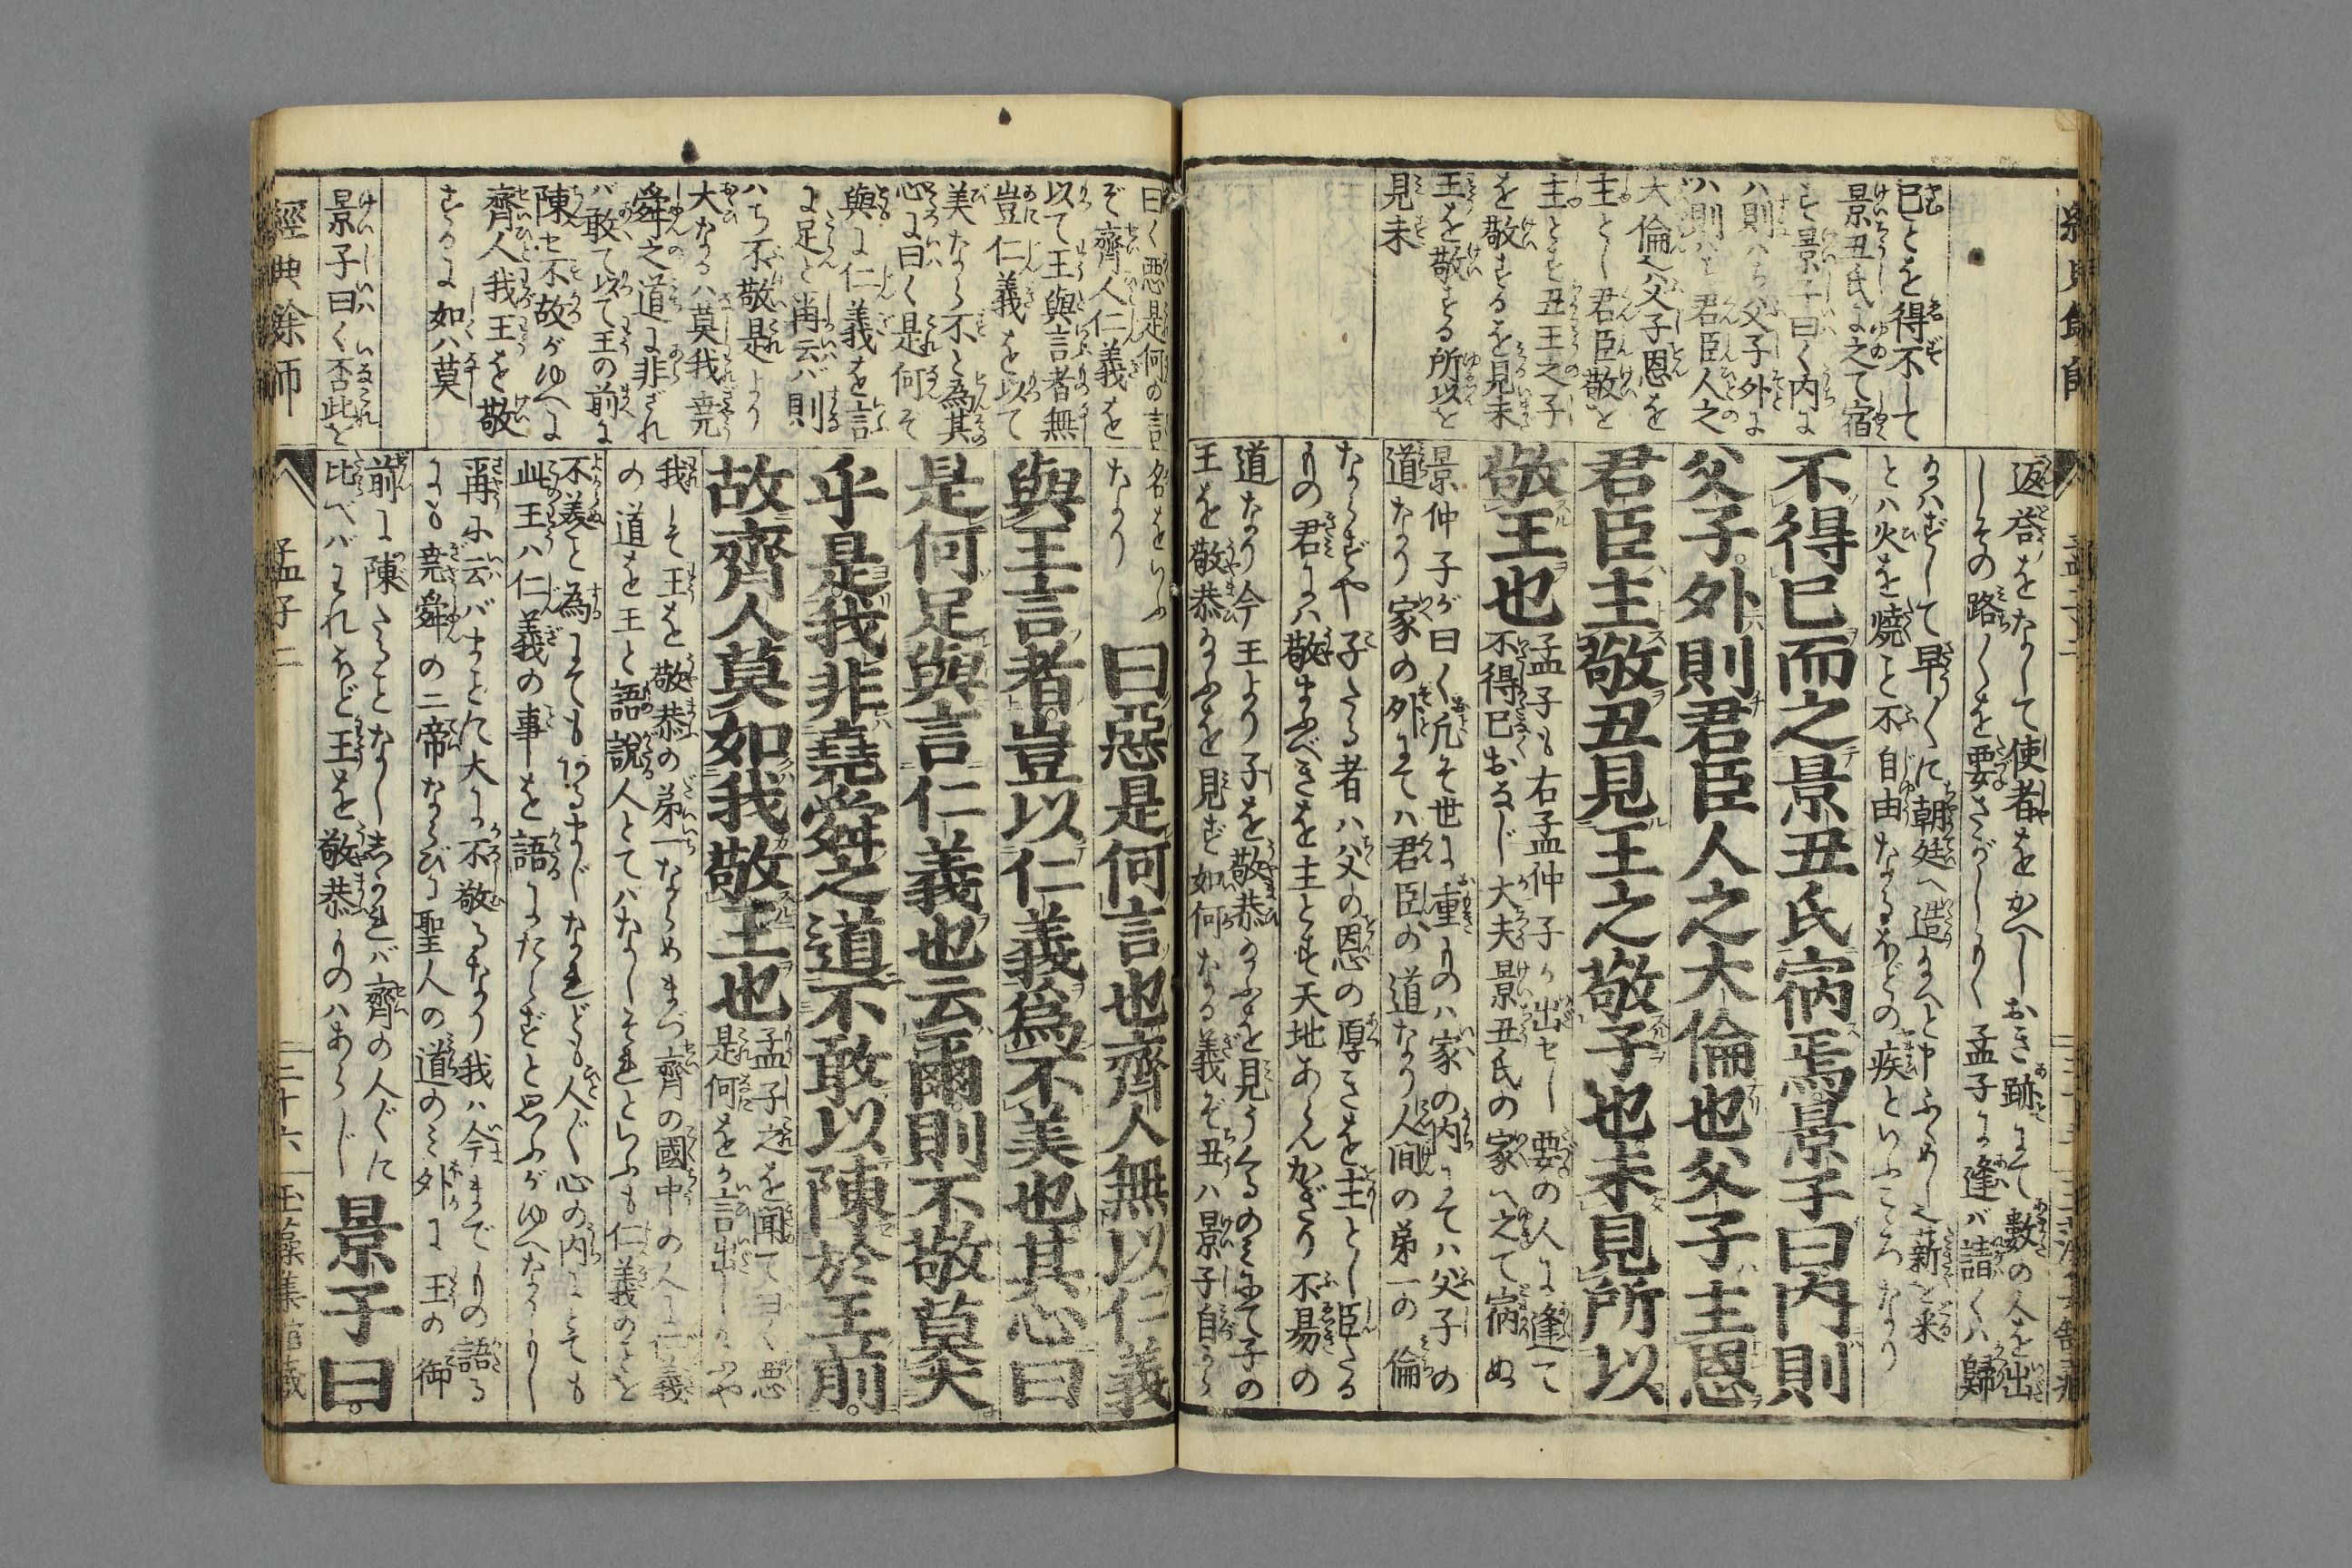 已ことを得ずして
景丑氏に之て宿
す景子曰く内に
ハ則ハち父子外に
ハ則ハち君臣人之
大倫也父子恩を
主とし君臣敬を
主とす丑王之子
を敬するを見未
王を敬する所以を
見未
返答をなして使者をかへしおき跡にて數の人を出
しその路〱を要さがしもく孟子に逢バ請くハ歸
とハ火を燒こと不自由なるほどの疾といふこゝろなり
不得已而之景丑氏宿焉景子曰内則
父子外則君臣人之大倫也父子主恩
君臣主敬丑見王之敬子也未見所以
敬王也
孟子も右孟仲子が出せし要の人に逢て
不得已おなじ大夫景丑氏の家へ之て宿ぬ
景仲子が曰く凡そ世に重ものハ家の内にてハ父子の
道なり家の外にてハ君臣の道なり人間の第一の倫
ならずや子たる者ハ父の恩の厚きを主とし臣たる
ものの君にハ敬まふべきを主とす天地あらんかぎり不易の
道なり今王より子を敬恭なふを見うくるのみにて子の
王を敬恭なふを見ず如何なる義ぞ丑ハ景子自から
名をいふ
なり
曰惡是何言也齊人無以仁義
與王言者豈以仁義爲不美也其心曰
是何足與言仁義也云爾則不敬莫大
乎是我非堯舜之道不敢以陳於王前
故齊人莫如我敬王也
孟子之を聞て曰く惡
是何をか言出しなふや
我こそ王を敬恭の第一ならめまづ齊の國中の人に仁義
の道を王と語說人とてハなしそれといふも仁義のことを
不美と為にてもなるまじなれども人〲心の内にても
此王ハ仁義の事を語にたらずと思ふがゆへなりもし
再に云バまことに大に不敬るなり我ハ今までもの語る
にも堯舜の二帝ならびに聖人の道のミ外に王の御
前に陳たることなししかれバ齊の人〲に
比べバわれほど王を敬恭ものハあらじ
景子曰
曰く惡是何の言
ぞ齊人仁義を
以て王與言者無
豈仁義を以て
美なら不と為其
心に曰く是何そ
與に仁義を言
に足と尓云バ則
ハち不敬是より
大なるハ莫我堯
舜之道に非ざれ
バ敢て以て王の前に
陳せ不故がゆへに
齊人我王を敬
するに如ハ莫
景子曰く否此を
經典餘師
孟子二
三十六